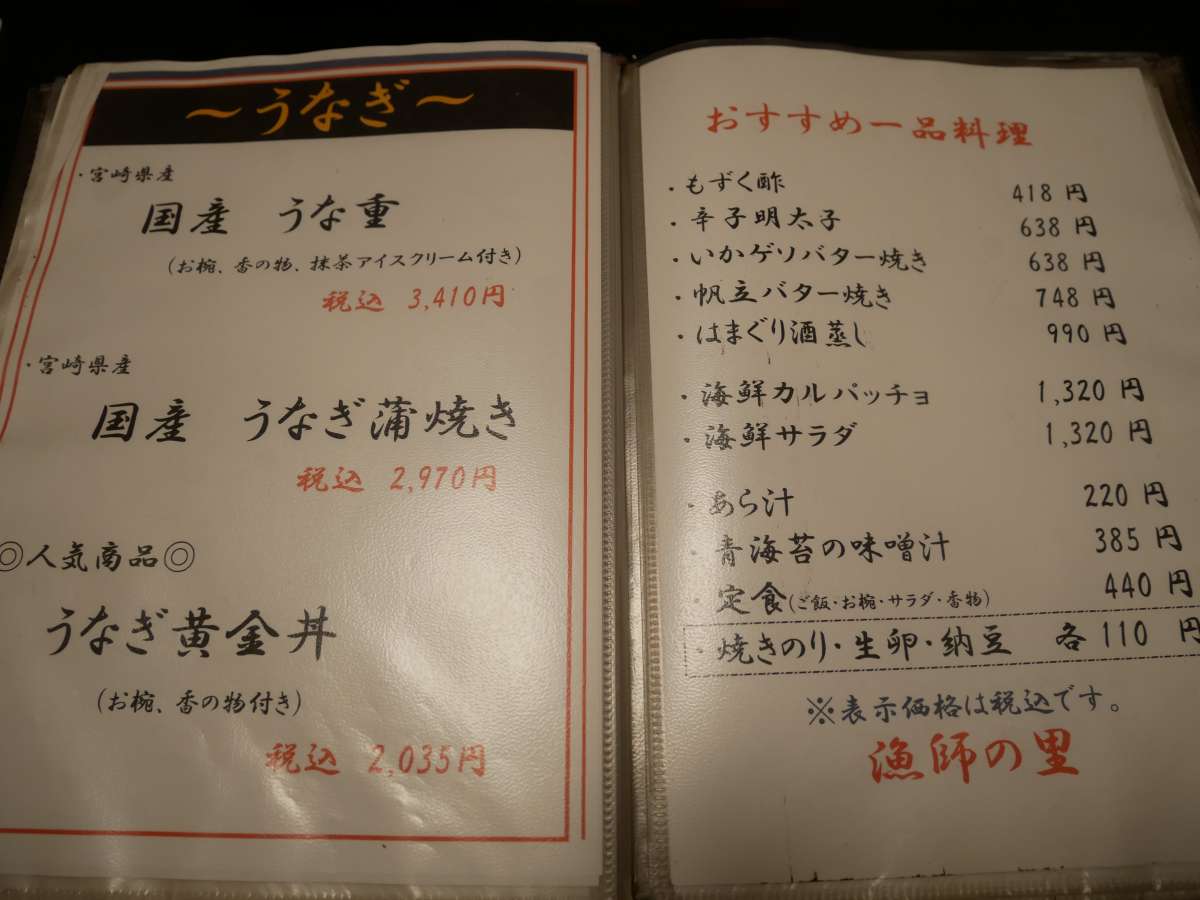 ～うなぎ～
・宮崎県産
国産 うな重
(お椀、香の物、抹茶アイスクリーム付き)
税込 3,410円
・宮崎県産
国産 うなぎ蒲焼き
税込 2,970円
◎人気商品◎
うなぎ黄金丼
(お椀、香の物付き)
税込 2,035円
おすすめ一品料理
・もずく酢 418円
・辛子明太子 638円
・いかゲソバター焼き 638円
・帆立バター焼き 748円
・はまぐり酒蒸し 990円
・海鮮カルパッチョ 1,320円
・海鮮サラダ 1,320円
・あら汁 220円
・青海苔の味噌汁 385円
・定食(ご飯・お椀・サラダ・香物) 440円
・焼きのり・生卵・納豆 各110円
※表示価格は税込です。
漁師の里